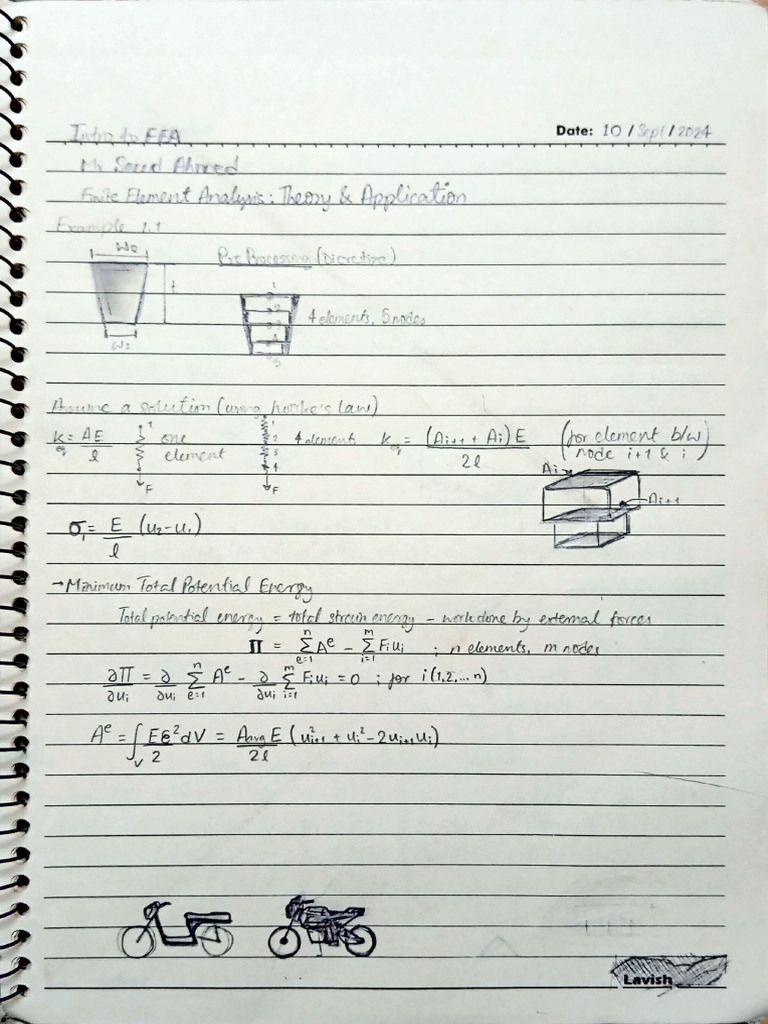 Date: 10 / Sept / 2024
Intro to FEA
Mr Saud Ahmed
Finite Element Analysis: Theory & Application
Example 1.1
W₀
Pre Processing (Discretize)
t
1
2
3
4
5
4 elements, 5 nodes
Assume a solution (using hooke's law)
k_eq = AE/l
1
F
one element
1
2
3
4
F
4 elements
k_eq = (A_{i+1} + A_i)E / 2l
(for element b/w node i+1 & i)
A_i
A_{i+1}
σ₁ = E/l (u₂-u₁)
→ Minimum Total Potential Energy
Total potential energy = total strain energy - work done by external forces
Π = Σ_{e=1}^{n} A^e - Σ_{i=1}^{m} F_i u_i ; n elements, m nodes
∂Π/∂u_i = ∂/∂u_i Σ_{e=1}^{n} A^e - ∂/∂u_i Σ_{i=1}^{m} F_i u_i = 0 ; for i (1,2,...n)
A^e = ∫_V Eε²/2 dV = A_avg E/2l (u²_{i+1} + u_i² - 2u_{i+1}u_i)
Lavish